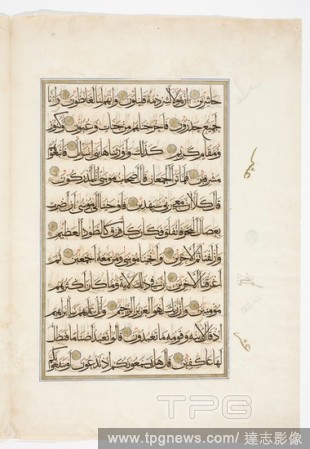 حاشرين ان هؤلاء لشرذمة قليلون وانهم لنا لغائظون وانا
لجميع حذرون فاخرجناهم من جنات وعيون وكنوز
ومقام كريم كذلك واورثناها بني اسرائيل فاتبعوهم
مشرقين فلما تراءا الجمعان قال اصحاب موسى انا لمدركون
قال كلا ان معي ربي سيهدين فاوحينا الى موسى ان اضرب
بعصاك البحر فانفلق فكان كل فرق كالطود العظيم
وازلفنا ثم الاخرين وانجينا موسى ومن معه اجمعين ثم
اغرقنا الاخرين ان في ذلك لاية وما كان اكثرهم
مؤمنين وان ربك لهو العزيز الرحيم واتل عليهم نبا ابرهيم
اذ قال لابيه وقومه ما تعبدون قالوا نعبد اصناما فنظل
لها عاكفين قال هل يسمعونكم اذ تدعون او ينفعونكم
TPG
www.tpgnews.com/達志影像